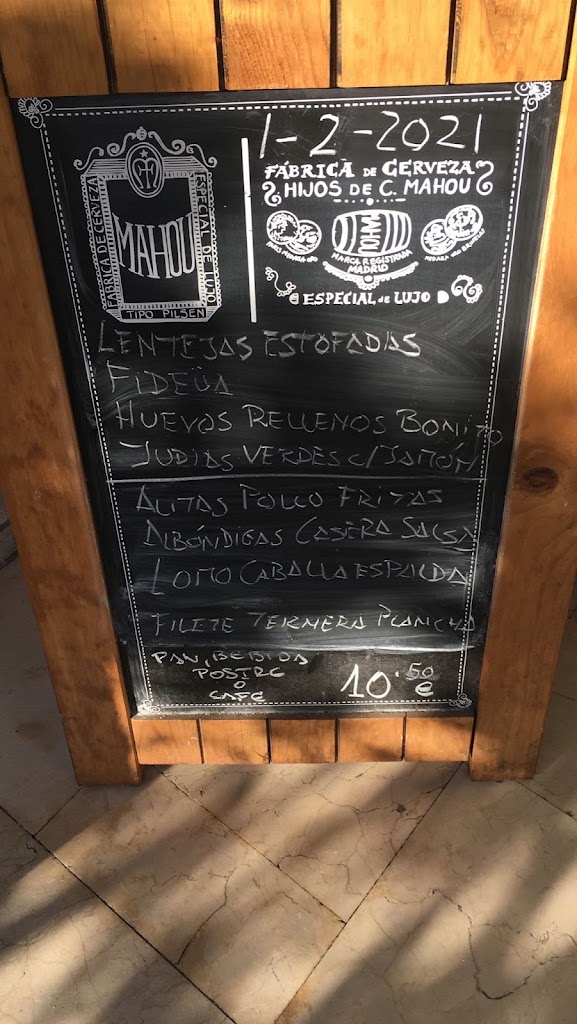 1-2-2021
FÁBRICA DE CERVEZA
ESPECIAL DE LUJO
MAHOU
TIPO PILSEN
FÁBRICA DE CERVEZA
HIJOS DE C. MAHOU
MARCA REGISTRADA
MADRID
ESPECIAL DE LUJO
LENTEJAS ESTOFADAS
FIDEÜA
HUEVOS RELLENOS BONITO
JUDIAS VERDES C/JAMÓN
ALITAS POLLO FRITAS
ALBÓNDIGAS CASERA SALSA
LOMO CABALLA ESPALDA
FILETE TERNERA PLANCHA
PAN, BEBIDA
POSTRE
O
CAFÉ
10'50 €